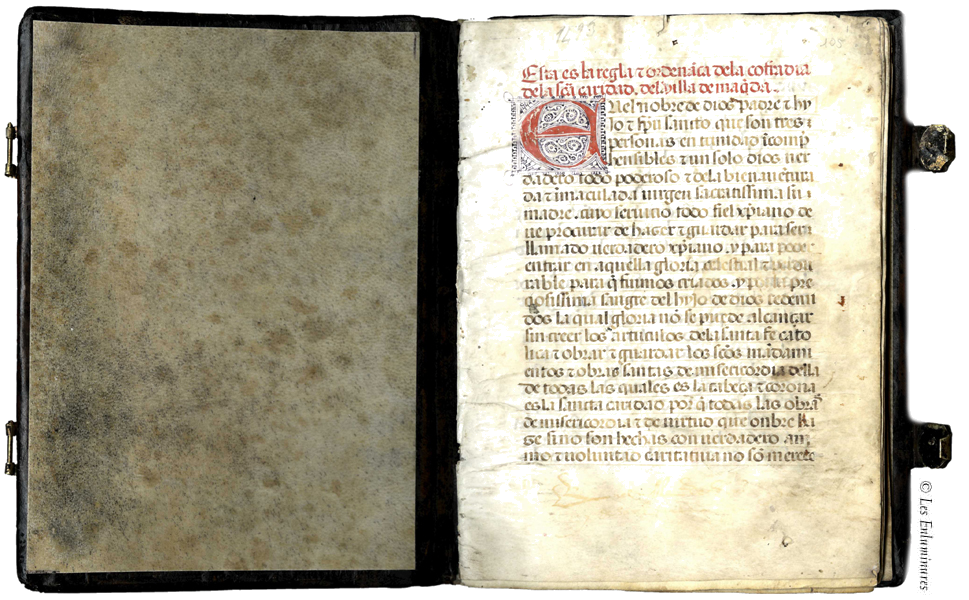 1493
105
Esta es la regla τ ordenãça dela cofradia
dela sc̃a caridad. del villa de maq̃da.
En el nõbre de dios padre τ hy
jo τ sp̃u santo que son tres
personas en trinidad ĩcomp̃
hensibles τ un solo dios ver
dadero todo poderoso τ dela bienavẽtura
da τ ĩmaculada virgen sacratissima su
madre. cuyo servicio todo fiel xp̃iano de
ue procurar de hazer τ guardar para ser
llamado verdadero xp̃iano. y para poder
entrar en aquella gloria celestial τ
rable para q̃ fuimos criados. y por la pre
çiosissima sangre del hyjo de dios redemi
dos la qual gloria nõ se puede alcançar
sin creer los articulos dela santa fe cato
lica τ obrar τ guardar los sc̃os mãdami
entos τ obras santas de misericordia della
de todas las quales es la cabeça τ corona
es la santa caridad por q̃ todas las obras
de misericordia τ de virtud que onbre ha
ge si no son hechas con verdadero ani
mo τ voluntad caritatiua no sõ merece
© Les Enluminures